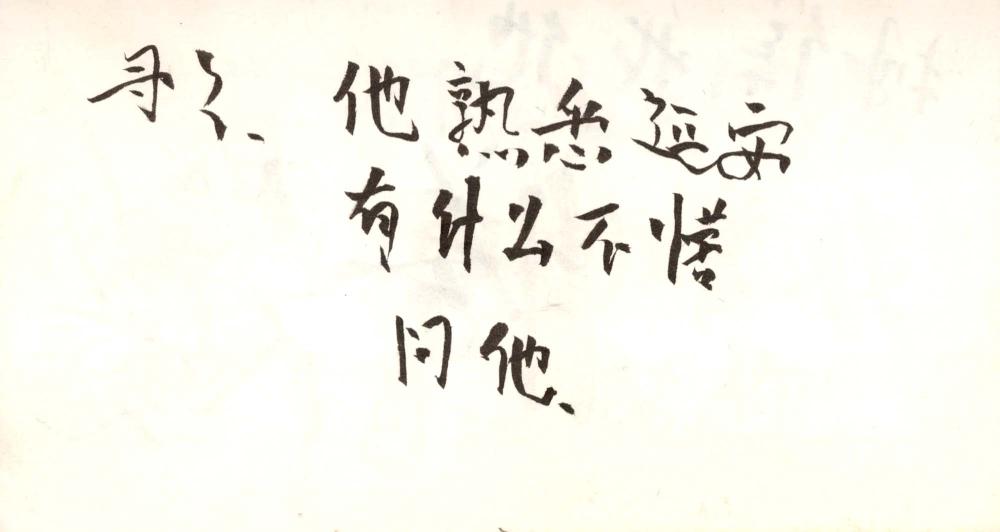 丹々、他熟悉延安
有什么不懂
问他、